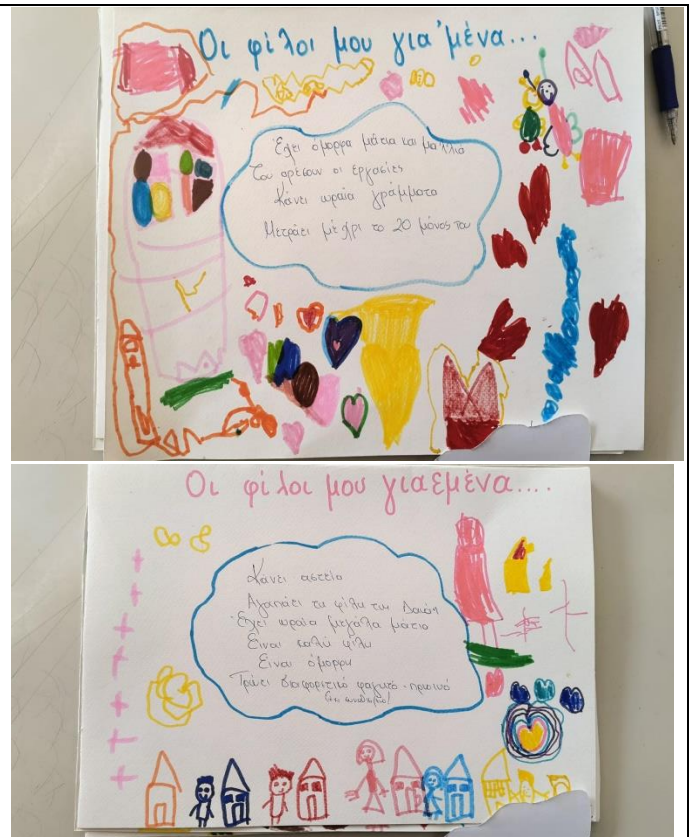 Οι φίλοι μου για 'μένα...
Έχει όμορφα μάτια και μαλλιά
Του αρέσουν οι εργασίες
Κάνει ωραία γράμματα
Μετράει μέχρι το 20 μόνος του
Οι φίλοι μου για εμένα....
Κάνει αστεία
Αγαπάει τη φίλη της
Έχει ωραία μεγάλα μάτια
Είναι καλή φίλη
Είναι όμορφη
Τρώει διαφορετικό φαγητό - πρωινό